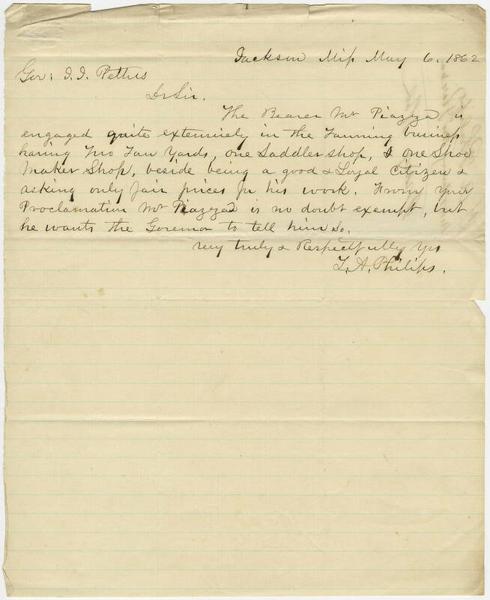 Jackson Miss May 6. 1862
Gov: J. J. Pettus
Dr Sir.
The Bearer Mr Piazza is
engaged quite extensively in the Tanning business
having Two Tan Yards, one Saddler shop, & one Shoe
Maker Shop, beside being a good & Loyal Citizen &
asking only fair prices for his work. From your
Proclamation Mr Piazza is no doubt exempt, but
he wants the Governor to tell him so.
very truly & Respectfully Yrs
L. A. Philips.